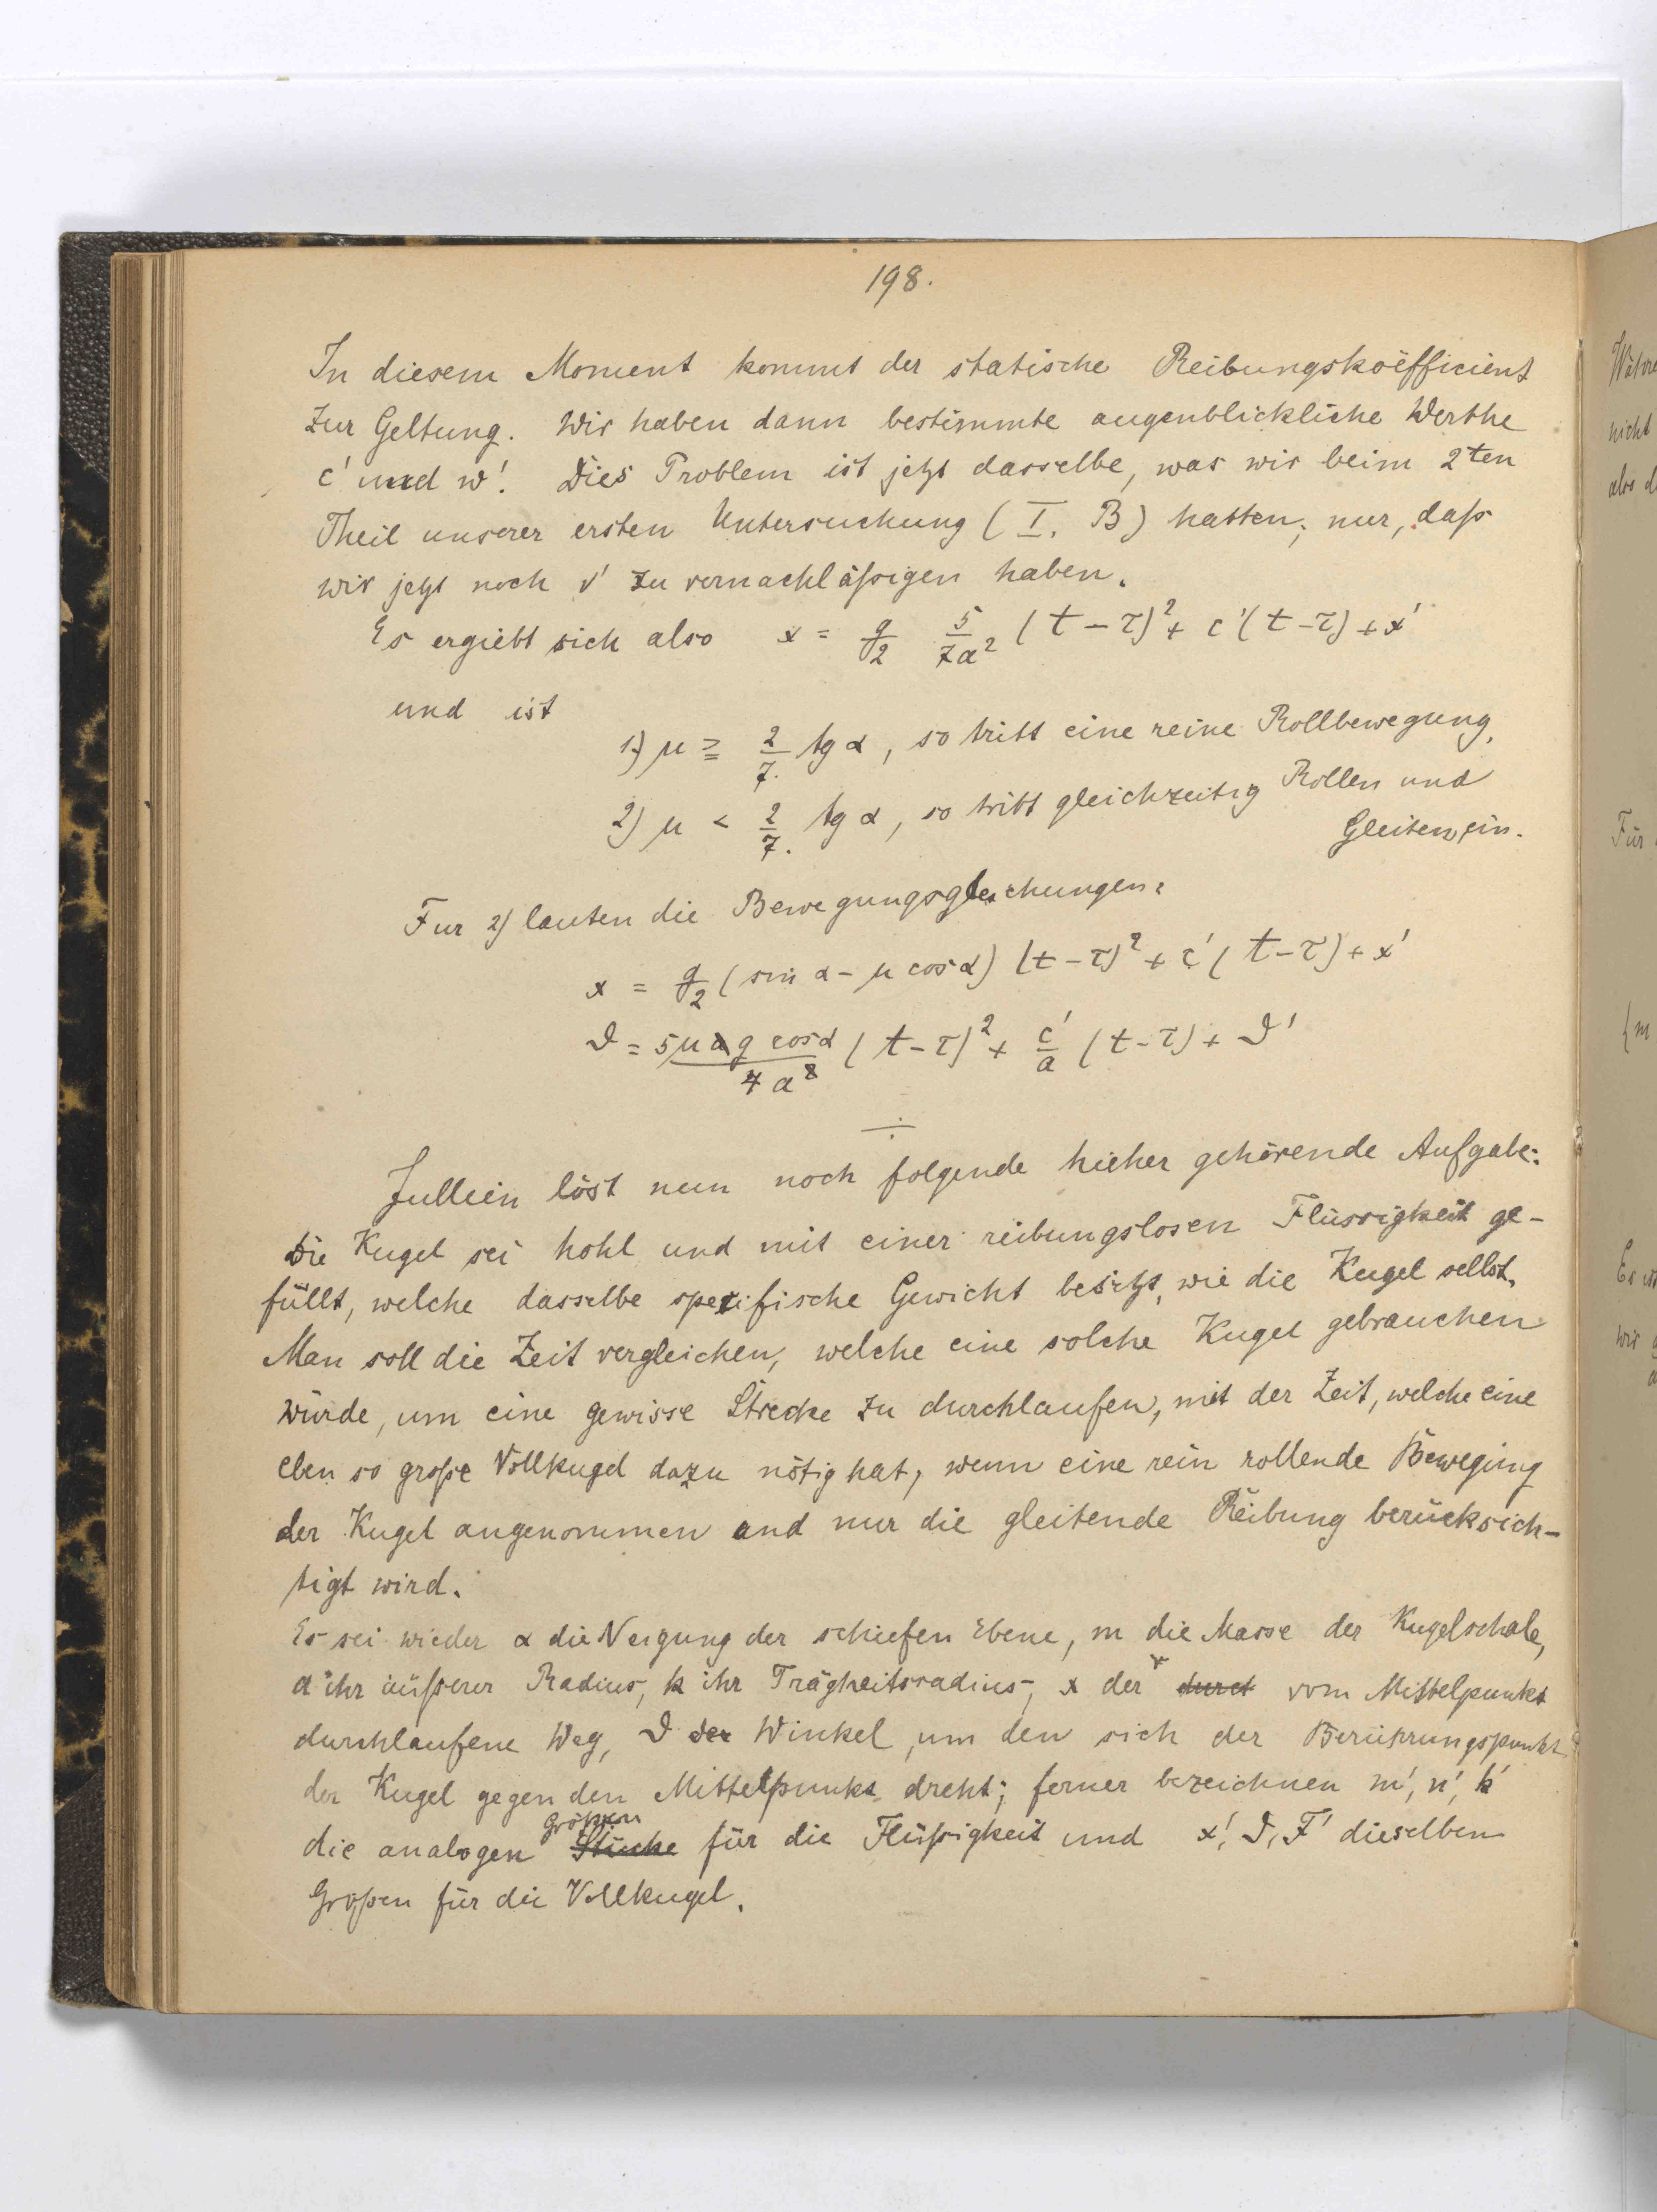 198.
In diesem Moment kommt der statische Reibungskoëfficient
zur Geltung. Wir haben dann bestimmte augenblickliche Werthe
c' und w'. Dies Problem ist jetzt dasselbe, was wir beim 2ten
Theil unserer ersten Untersuchung (I. B) hatten; nur, daſs
wir jetzt noch v' zu vernachläſsigen haben.
Es ergiebt sich also x = g/2 5/7a² (t-τ)² + c'(t-τ) + x'
und ist
1) μ ≧ 2/7. tg α, so tritt eine reine Rollbewegung,
2) μ < 2/7. tg α, so tritt gleichzeitig Rollen und
Gleiten ein.
Fur 2) lauten die Bewegungsgleichungen:
x = g/2 (sin α - μ cos α) (t-τ)² + c'(t-τ) + x'
ϑ = 5μag cosα/4a² (t-τ)² + c'/a (t-τ) + ϑ'
Jullein löst nun noch folgende hieher gehörende Aufgabe:
Die Kugel sei hohl und mit einer reibungslosen Flüssigkeit ge-
füllt, welche dasselbe spezifische Gewicht besitzt, wie die Kugel selbst.
Man soll die Zeit vergleichen, welche eine solche Kugel gebrauchen
würde, um eine gewisse Strecke zu durchlaufen, mit der Zeit, welche eine
eben so groſse Vollkugel dazu nötig hat, wenn eine rein rollende Bewegung
der Kugel angenommen und nur die gleitende Reibung berücksich-
tigt wird.
Es sei wieder α die Neigung der schiefen Ebene, m die Masse der Kugelschale,
a ihr äuſserer Radius, k ihr Trägheitsradius, x der durct vom Mittelpunkt
durchlaufene Weg, ϑ der Winkel, um den sich der Berührungspunkt
der Kugel gegen den Mittelpunkt dreht; ferner bezeichnen m', n', k'
Gröſsen
die analogen Stücke für die Flüſsigkeit und x', ϑ, F' dieselben
Gröſsen für die Vollkugel.